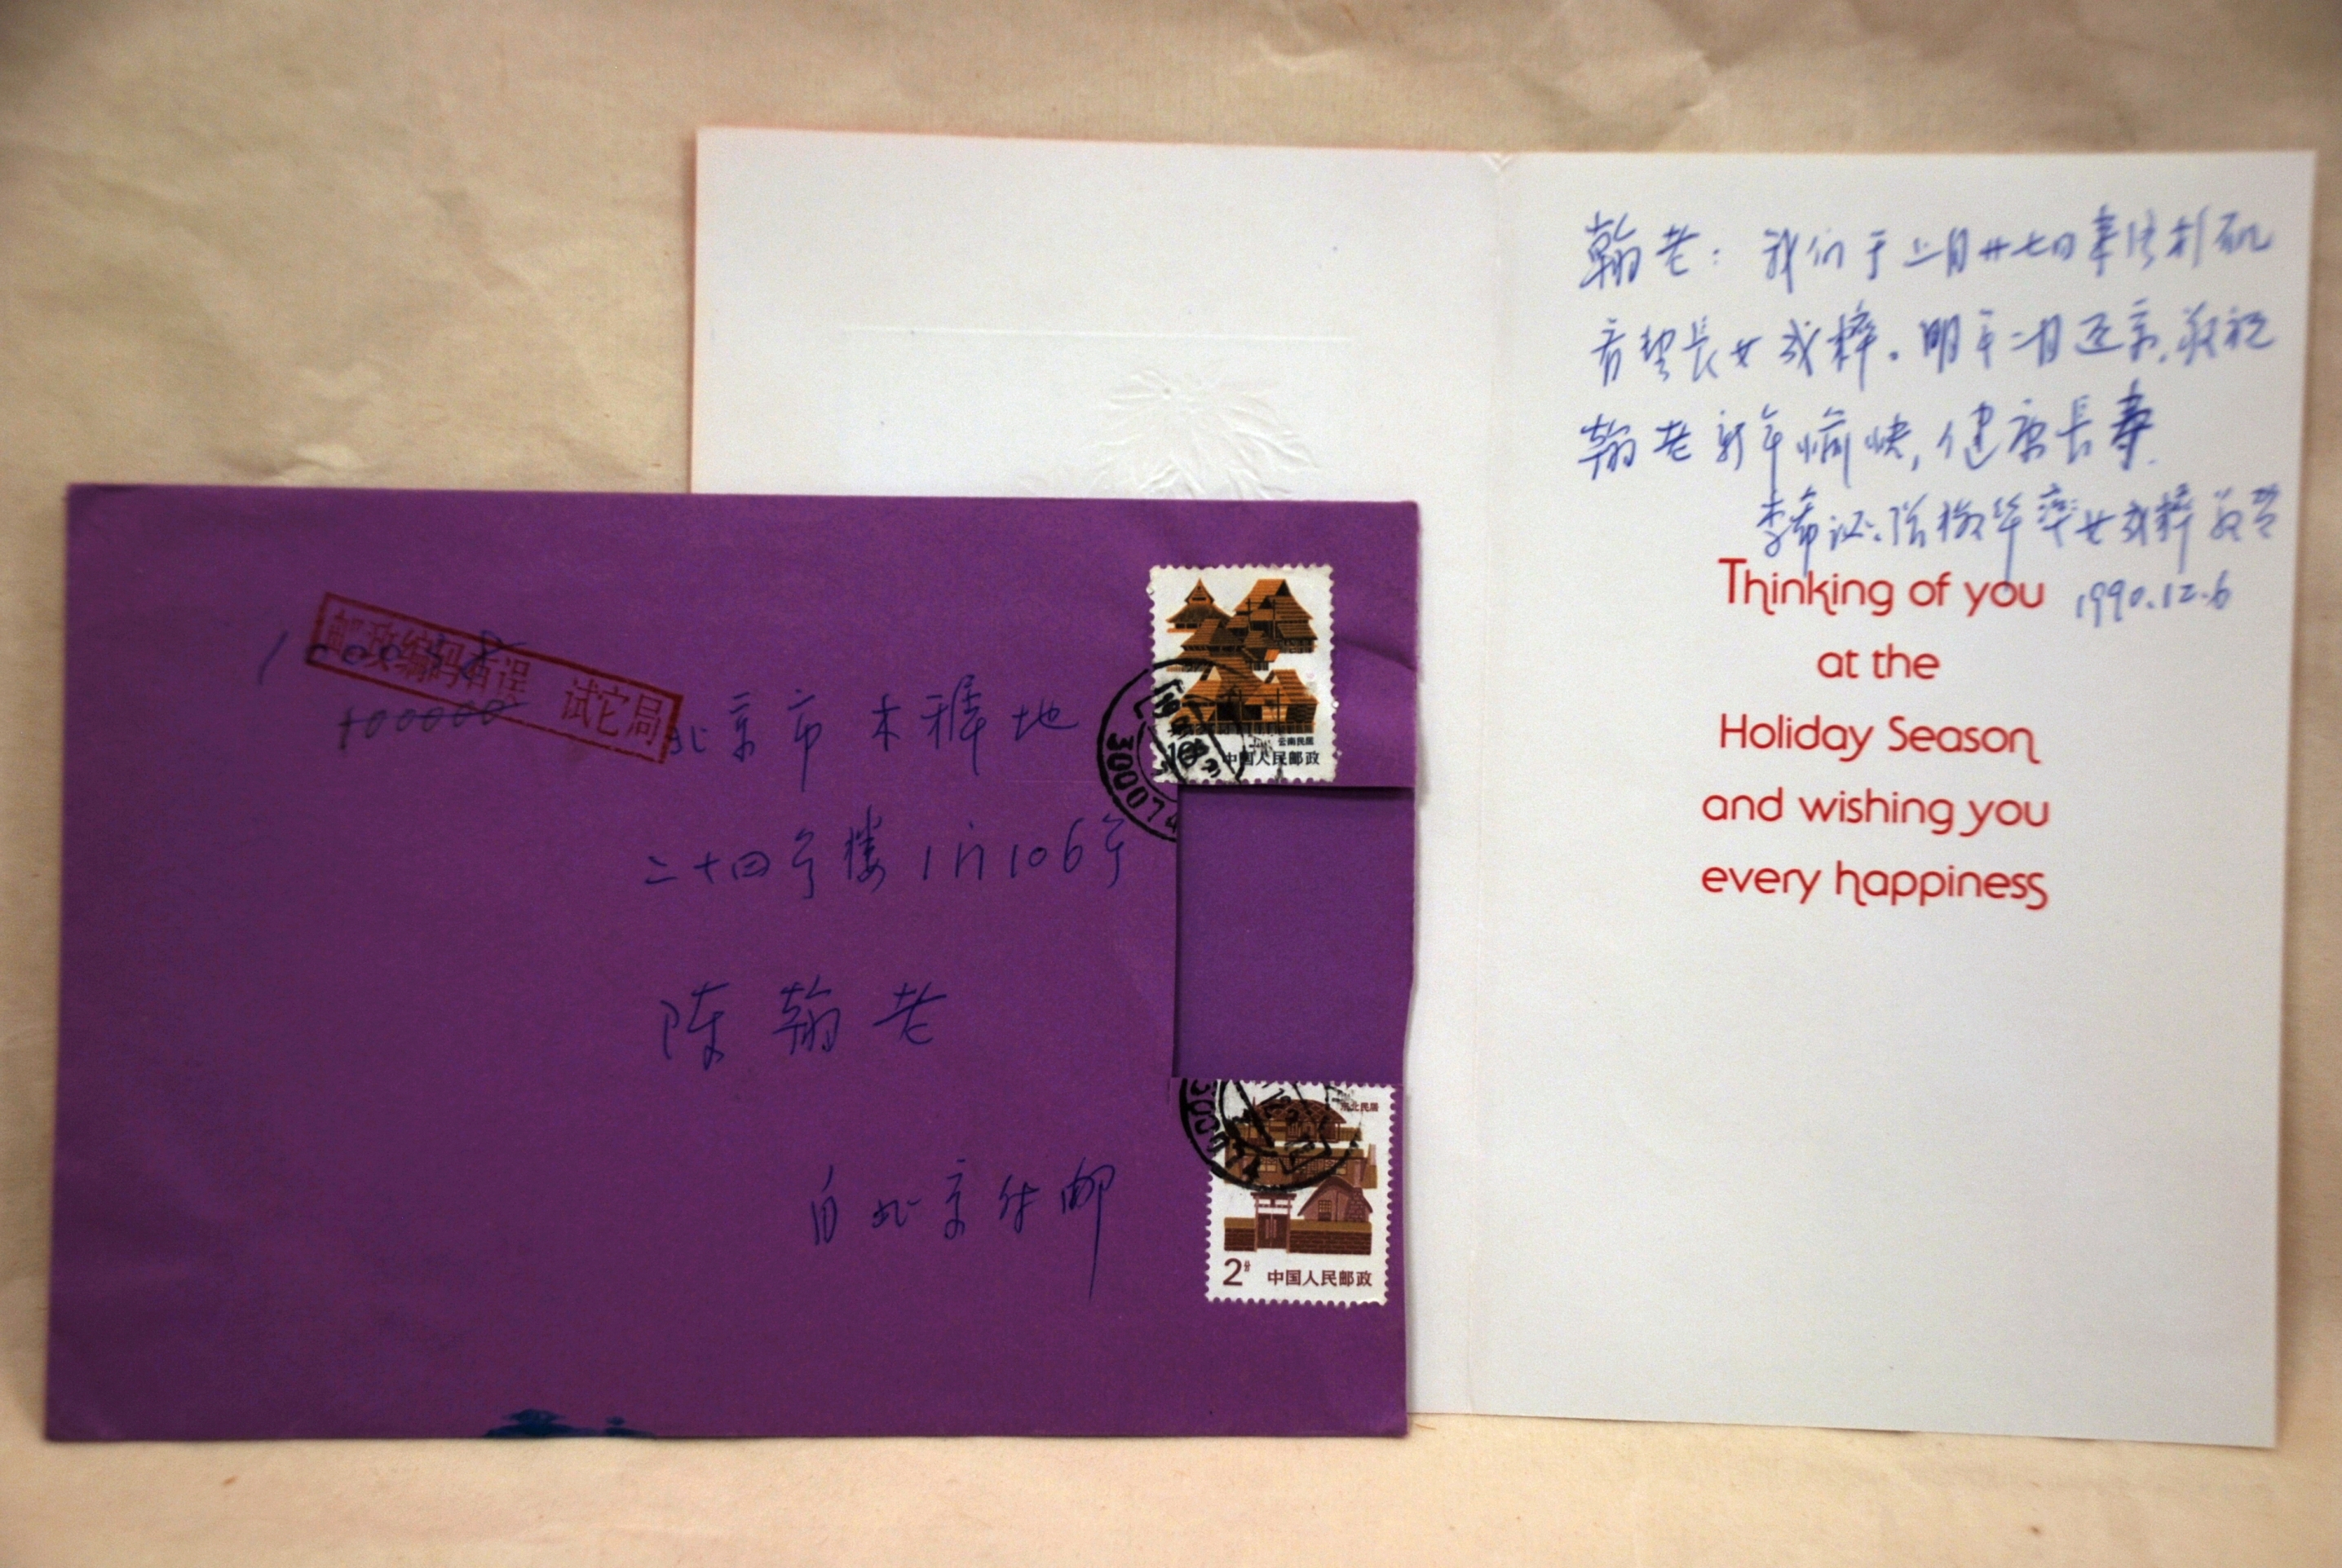 邮政编码有误 试它局
100000
北京市木樨地
二十四号楼1门106号
陈翰老
自北京付邮
云南民居
中国人民邮政
民居
2分 中国人民邮政
翰老：我们于 月廿七日来洛杉矶
长女 。明年 月返京，敬祝
翰老新年愉快，健康長寿
李希 女 敬贺
1990.12.6
Thinking of you
at the
Holiday Season
and wishing you
every happiness